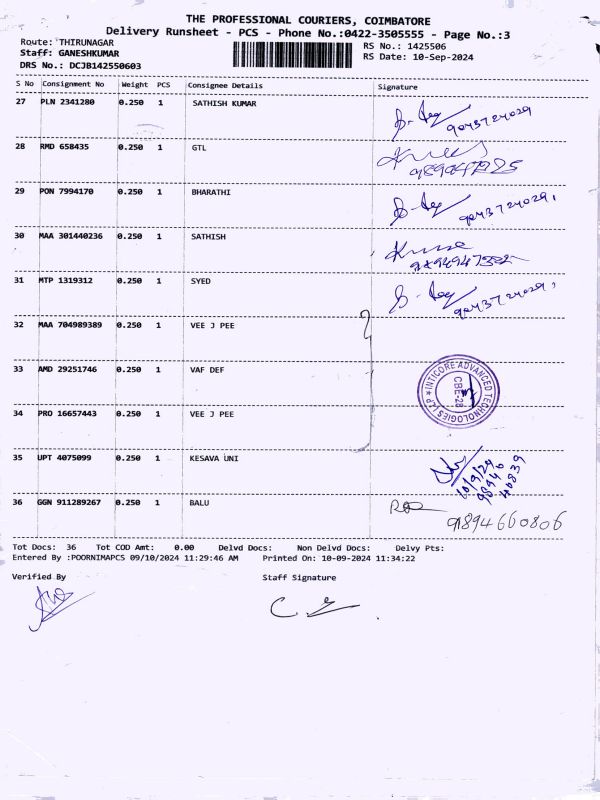 THE PROFESSIONAL COURIERS, COIMBATORE
Delivery Runsheet - PCS - Phone No.:0422-3505555 - Page No.:3
Route: THIRUNAGAR
RS No.: 1425506
Staff: GANESHKUMAR
RS Date: 10-Sep-2024
DRS No.: DCJB142550603
S No Consignment No Weight PCS Consignee Details Signature
27 PLN 2341280 0.250 1 SATHISH KUMAR
9043724029
28 RMD 658435 0.250 1 GTL
29 PON 7994170 0.250 1 BHARATHI
9043724029,
30 MAA 301440236 0.250 1 SATHISH
31 MTP 1319312 0.250 1 SYED
9043724029,
32 MAA 704989389 0.250 1 VEE J PEE
33 AMD 29251746 0.250 1 VAF DEF
INTICORE ADVANCED TECHNOLOGIES LLP
CBE-28
34 PRO 16657443 0.250 1 VEE J PEE
35 UPT 4075099 0.250 1 KESAVA UNI
10/9/24
98946
40839
36 GGN 911289267 0.250 1 BALU
91894660806
Tot Docs: 36 Tot COD Amt: 0.00 Delvd Docs: Non Delvd Docs: Delvy Pts:
Entered By :POORNIMAPCS 09/10/2024 11:29:46 AM Printed On: 10-09-2024 11:34:22
Verified By Staff Signature